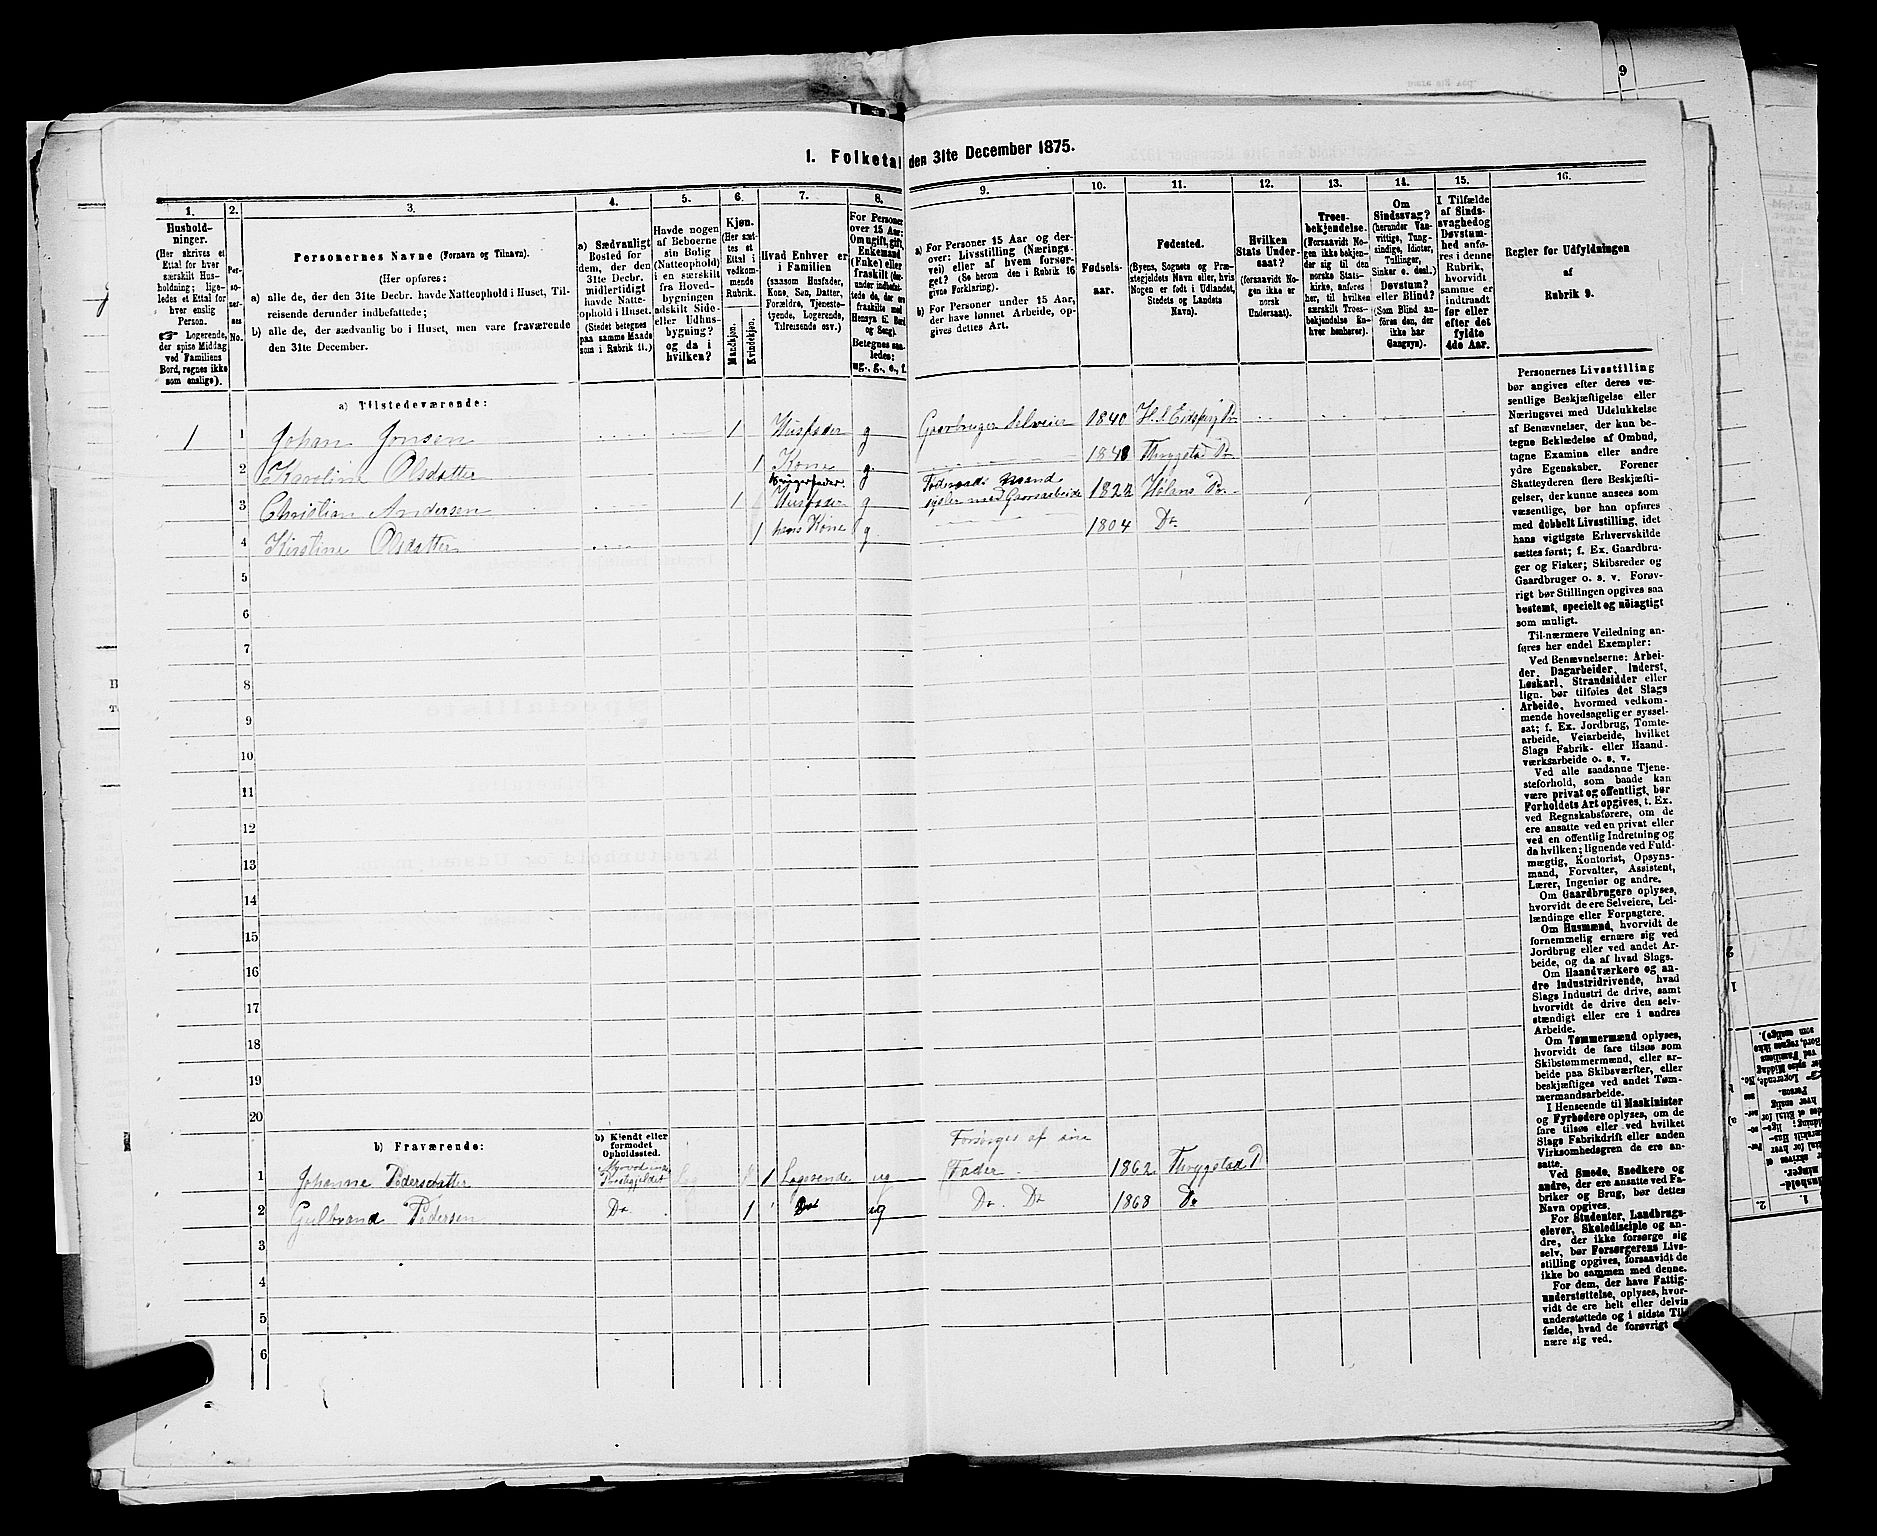 I. Folketal den 31te December 1875.
1.
2.
3.
4.
5.
6.
7.
8.
9.
10.
11.
12.
13.
14.
15.
16.
Husholdninger.
(Her skrives et Ettal for hver særskilt Husholdning; ligeledes et Ettal for hver enslig Person.
Logerende, der spise Middag ved Familiens Bord, regnes ikke som enslige).
Personernes No.
Personernes Navne (Fornavn og Tilnavn).
(Her opføres:
a) alle de, der den 31te Decbr. havde Natteophold i Huset, Tilreisende derunder indbefattede;
b) alle de, der sædvanlig bo i Huset, men vare fraværende den 31te December.
a) Sædvanligt Bosted for dem, der den 31te Decbr. midlertidigt havde Natteophold i Huset.
(Stedet betegnes paa samme Maade som i Rubrik 11.)
Havde nogen af Beboerne sin Bolig (Natteophold) i en særskilt fra Hovedbygningen adskilt Side- eller Udhusbygning? og da i hvilken?
Kjøn.
(Her sættes et Ettal i vedkommende Rubrik.
Mandkjøn.
Kvindekjøn.
Hvad Enhver er i Familien
(saasom Husfader, Kone, Søn, Datter, Forældre, Tjenestetyende, Logerende, Tilreisende osv.)
For Personer over 15 Aar: Om ugift, gift, Enkemand (Enke) eller fraskilt
Betegnes saaledes: ug., g., e., f.
a) For Personer 15 Aar og derover: Livsstilling (Næringsvei) eller af hvem forsørget? (Se herom den i Rubrik 16 givne Forklaring).
b) For Personer under 15 Aar, der have lønnet Arbeide, opgives dettes Art.
Fødselsaar.
Fødested.
(Byens, Sognets og Præstegjeldets Navn eller, hvis Nogen er født i Udlandet, Stedets og Landets Navn).
Hvilken Stats Undersaat?
(forsaavidt Nogen ikke er norsk Undersaat).
Troesbekjendelse.
(Forsaavidt Nogen ikke bekjender sig til den norske Statskirke, anføres her, til hvilken særskilt Troesbekjendelse Enhver henhører).
Om Sindssvag? (herunder Vanvittige, Tungsindige, Idioter, Tullinger, Sinker o. desl.) Døvstum? eller Blind? (Som Blind anføres den, der ikke har Gangsyn).
I Tilfælde af Sindssvaghed og Døvstumhed anføres i denne Rubrik, hvorvidt samme er indtraadt før eller efter det fyldte 4de Aar.
Regler for Udfyldningen af Rubrik 9.
a) Tilstedeværende:
1 1 Johan Jonsen 1 Husfader g Gaardbruger Selveier 1840
2 Karoline Olsdatter 1 Kone g 1848 Thrygstad Pr
3 Christian Andersen 1 Husfader g 1824 Hølans Pr.
4 Kirstine Olsdatter 1 hans Kone g 1804 Do
5
6
7
8
9
10
11
12
13
14
15
16
17
18
19
20
b) Fraværende:
b) Kjendt eller formodet Opholdssted.
Forsørges af sin
1 Johanne Pedersdatter Præstegjeldet 1 Logerende ug Fader 1862 Thrygstad P
2 Gulbrand Pedersen Do 1 Do ug Do Do 1868 Do
3
4
5
6
Personernes Livsstilling bør angives efter deres væsentlige Beskjæftigelse eller Næringsvei med Udelukkelse af Benævnelser, der kun betegne Beklædelse af Ombud, tagne Examina eller andre ydre Egenskaber. Forener Skatteyderen flere Beskjæftigelser, der kunne ansees som væsentlige, bør han opføres med dobbelt Livsstilling, idet hans vigtigste Erhvervskilde sættes først; f. Ex. Gaardbruger og Fisker; Skibsreder og Gaardbruger o. s. v. Forøvrigt bør Stillingen opgives saa bestemt, specielt og nöiagtigt som muligt.
Til nærmere Veiledning anføres her endel Exempler:
Ved Benævnelserne: Arbeider, Dagarbeider, Inderst, Løskarl, Strandsidder eller lign. bør tilføies det Slags Arbeide, hvormed vedkommende hovedsagelig er sysselsat; f. Ex. Jordbrug, Tomtearbeide, Veiarbeide, hvilket Slags Fabrik- eller Haandværksarbeide o. s. v.
Ved alle saadanne Tjenesteforhold, som baade kan være privat og offentligt, bør Forholdets Art opgives, t. Ex. ved Regnskabsførere, om de ere ansatte ved en privat eller ved en offentlig Indretning og da hvilken; lignende ved Fuldmægtig, Kontorist, Opsynsmand, Forvalter, Assistent, Lærer, Ingeniør og andre.
Om Gaardbrugere oplyses, hvorvidt de ere Selveiere, Leilændinge eller Forpagtere.
Om Husmænd, hvorvidt de fornemmelig ernære sig ved Jordbrug eller ved andet Arbeide, og da af hvad Slags.
Om Haandværkere og andre Industridrivende, hvad Slags Industri de drive, samt hvorvidt de drive den selvstændigt eller ere i andres Arbeide.
Om Tømmermænd oplyses, hvorvidt de fare tilsøs som Skibstømmermænd, eller arbeide paa Skibsværfter, eller beskjæftiges ved andet Tømmermandsarbeide.
I Henseende til Maskinister og Fyrbødere oplyses, om de fare tilsøs eller ved hvilket Slags Fabrikdrift eller anden Virksomhedsgren de ere ansatte.
Ved Smede, Snedkere og andre, der ere ansatte ved Fabriker og Brug, bør dettes Navn opgives.
For Studenter, Landbrugselever, Skoledisciple og andre, der ikke forsørge sig selv, bør Forsørgerens Livsstilling opgives, forsaavidt de ikke bo sammen med denne.
For dem, der have Fattigunderstøttelse, oplyses, hvorvidt de ere helt eller delvis understøttede og i sidste Tilfælde, hvad de forøvrigt nære sig ved.